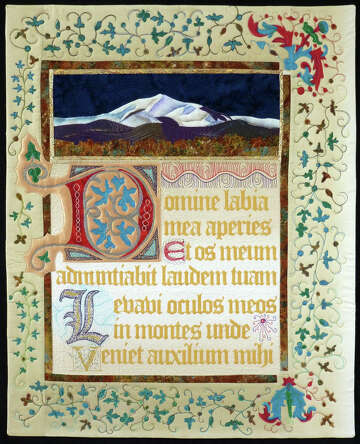 Domine labia
mea aperies
Et os meum
adnuntiabit laudem tuam
Levavi oculos meos
in montes unde
Veniet auxilium mihi